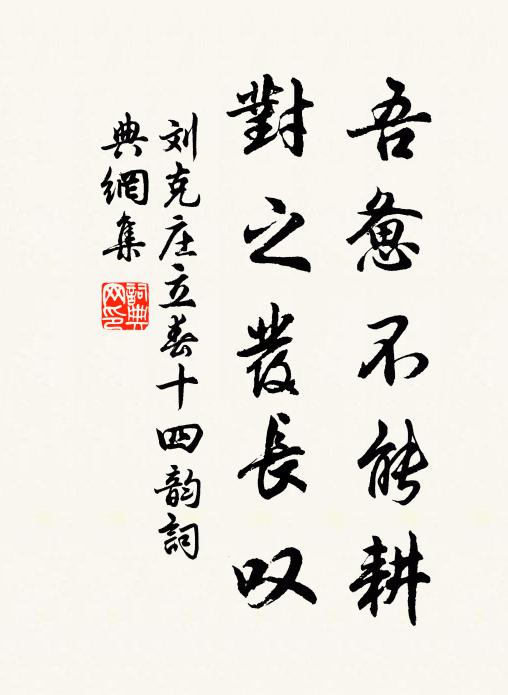 吾惫不能耕
對之發長叹
刘克庄立春十四韵詞
典網集
詞典
网印